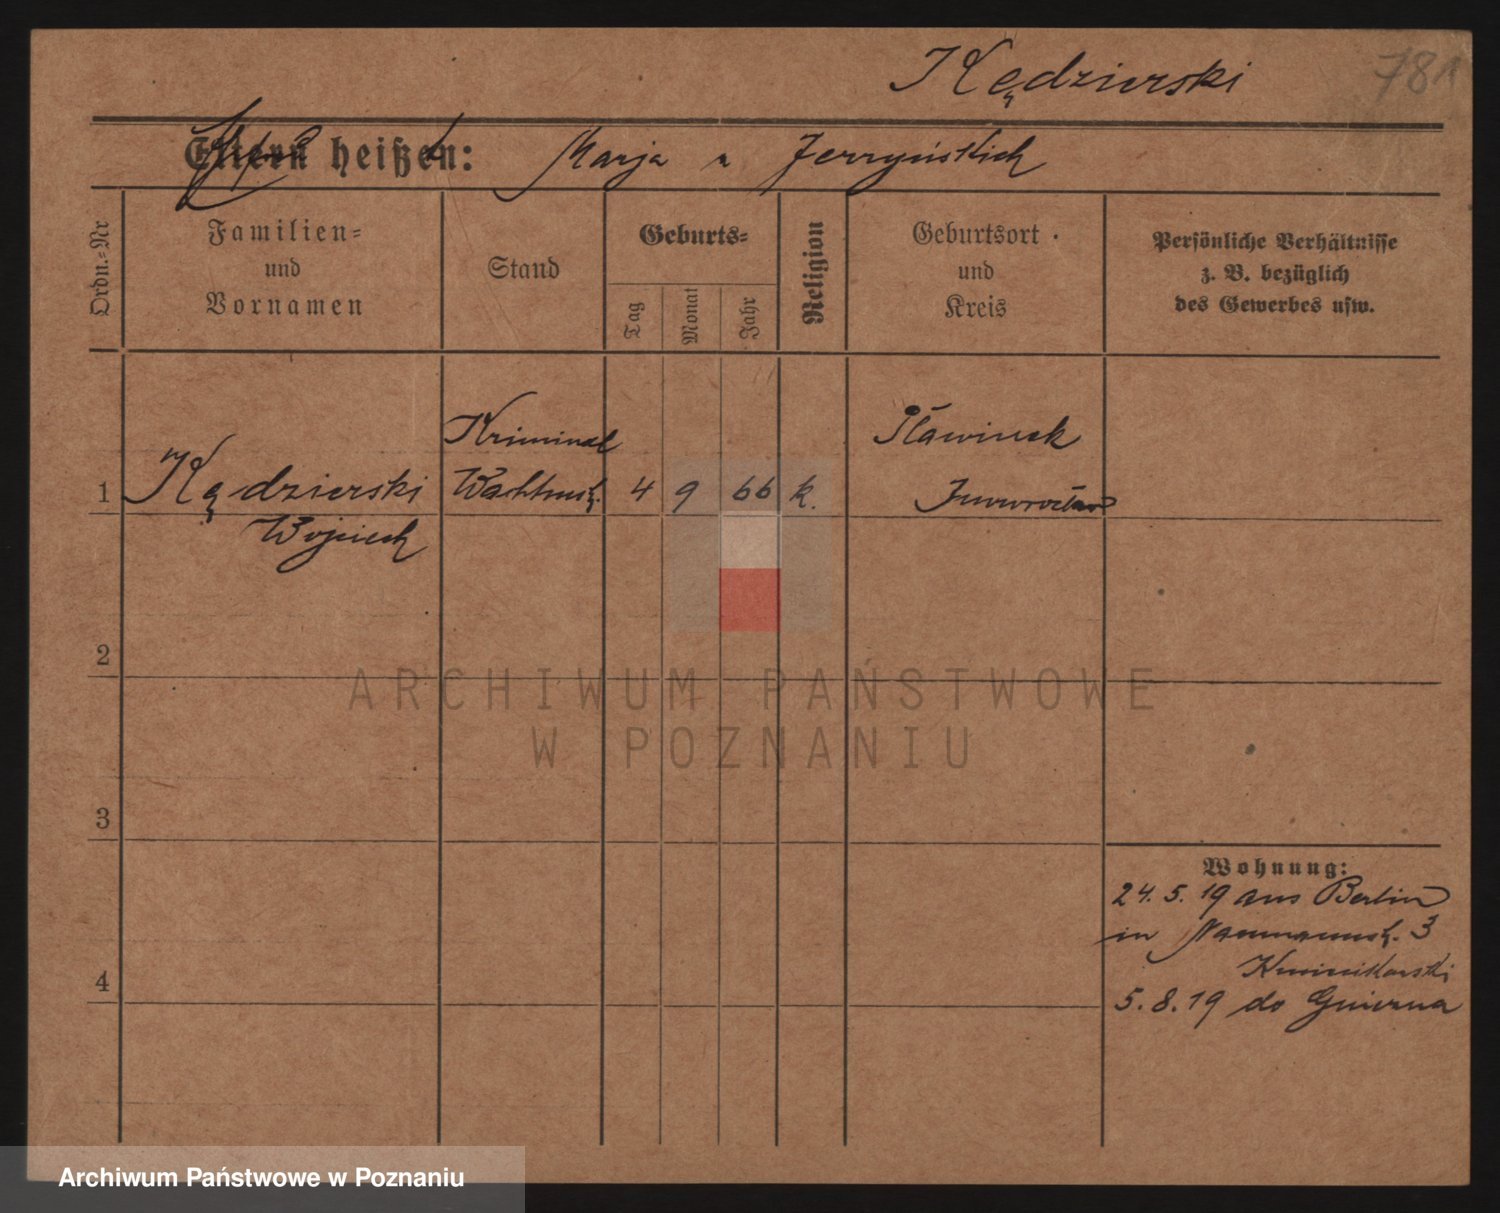 Kędzierski
781
Eltern heißen: Marja z Jerzyńskich
Ordn.-Nr
Familien-
und
Vornamen
Stand
Geburts-
Tag
Monat
Jahr
Religion
Geburtsort
und
Kreis
Persönliche Verhältnisse
z. B. bezüglich
des Gewerbes usw.
1
Kędzierski
Wojciech
Kriminal
Wachtmstr.
4 9 66 k.
Sławinek
Inowrocław
2
ARCHIWUM PAŃSTWOWE
W POZNANIU
3
Wohnung:
24. 5. 19 aus Berlin
in Naumannstr. 3
5. 8. 19 do Gniezna
4
Archiwum Państwowe w Poznaniu